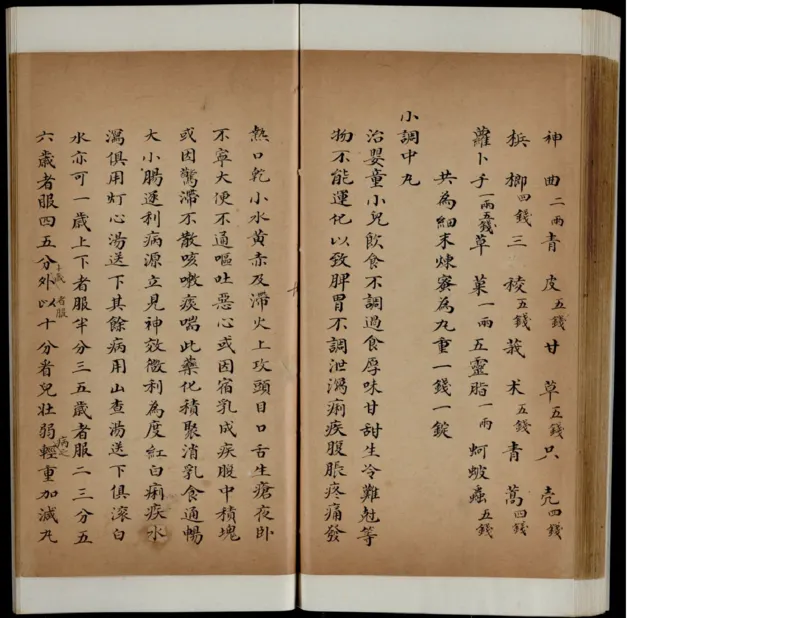 神曲二兩青皮五錢甘草五錢只壳四錢
梹榔四錢三稜五錢莪朮五錢青蒿四錢
蘿卜子一兩五錢草菓一兩五靈脂一兩蚵蚾蟲五錢
共為細末煉蜜為丸重一錢一錠
小調中丸
治嬰童小兒飲食不調過食厚味甘甜生冷難尅等
物不能運化以致脾胃不調泄瀉痢疾腹脹疼痛發
熱口乾小水黃赤及滯火上攻頭目口舌生瘡夜卧
不寧大便不通嘔吐惡心或因宿乳成疾腹中積塊
或因驚滯不散咳嗽痰喘此藥化積聚消乳食通暢
大小腸逐利病源立見神效微利為度紅白痢疾水
瀉俱用灯心湯送下其餘病用山查湯送下俱滾白
水亦可一歲上下者服半分三五歲者服二三分五
六歲者服四五分外十歲以者服十分看兒壯弱病之輕重加減丸